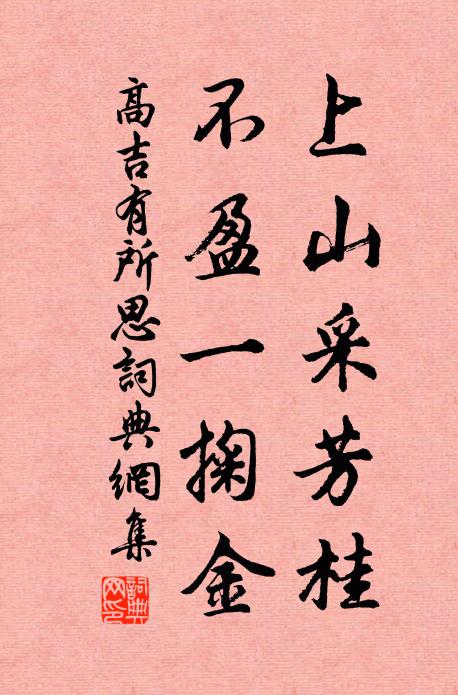 上山采芳桂
不盈一掬金
高吉有所思詞典網集
詞典
网印